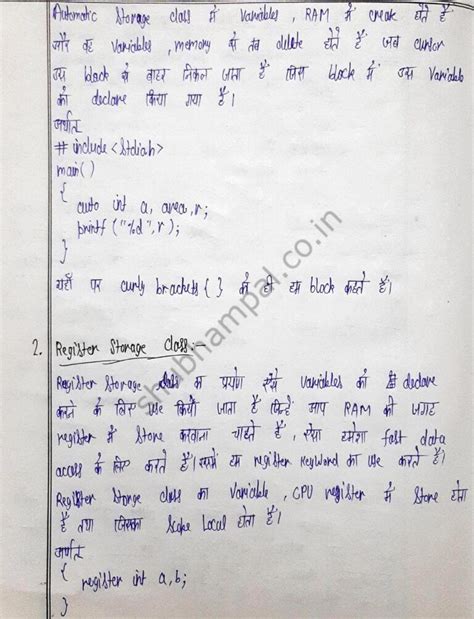 Automatic Storage class में variables, RAM में create होते हैं
और वह variables, memory से तब delete होते हैं जब cursor
उस block से बाहर निकल जाता है जिस block में उस variable
को declare किया गया है।
अर्थात्
# include <stdioh>
main()
{
auto int a, area, r;
printf ("%d", r);
}
यहाँ पर curly brackets { } को ही हम block कहते हैं।
2. Register Storage Class:-
Register Storage class का प्रयोग ऐसे variables को declare
करने के लिए use किया जाता है जिन्हें आप RAM की जगह
register में store करवाना चाहते हैं, ऐसा हमेशा fast data
access के लिए करते हैं। इसमें हम register keyword का use करते हैं।
Register Storage class का variable, CPU register में store होता
है तथा जिसका Scope Local होता है।
अर्थात्
{
register int a, b;
}
shubhampal.co.in